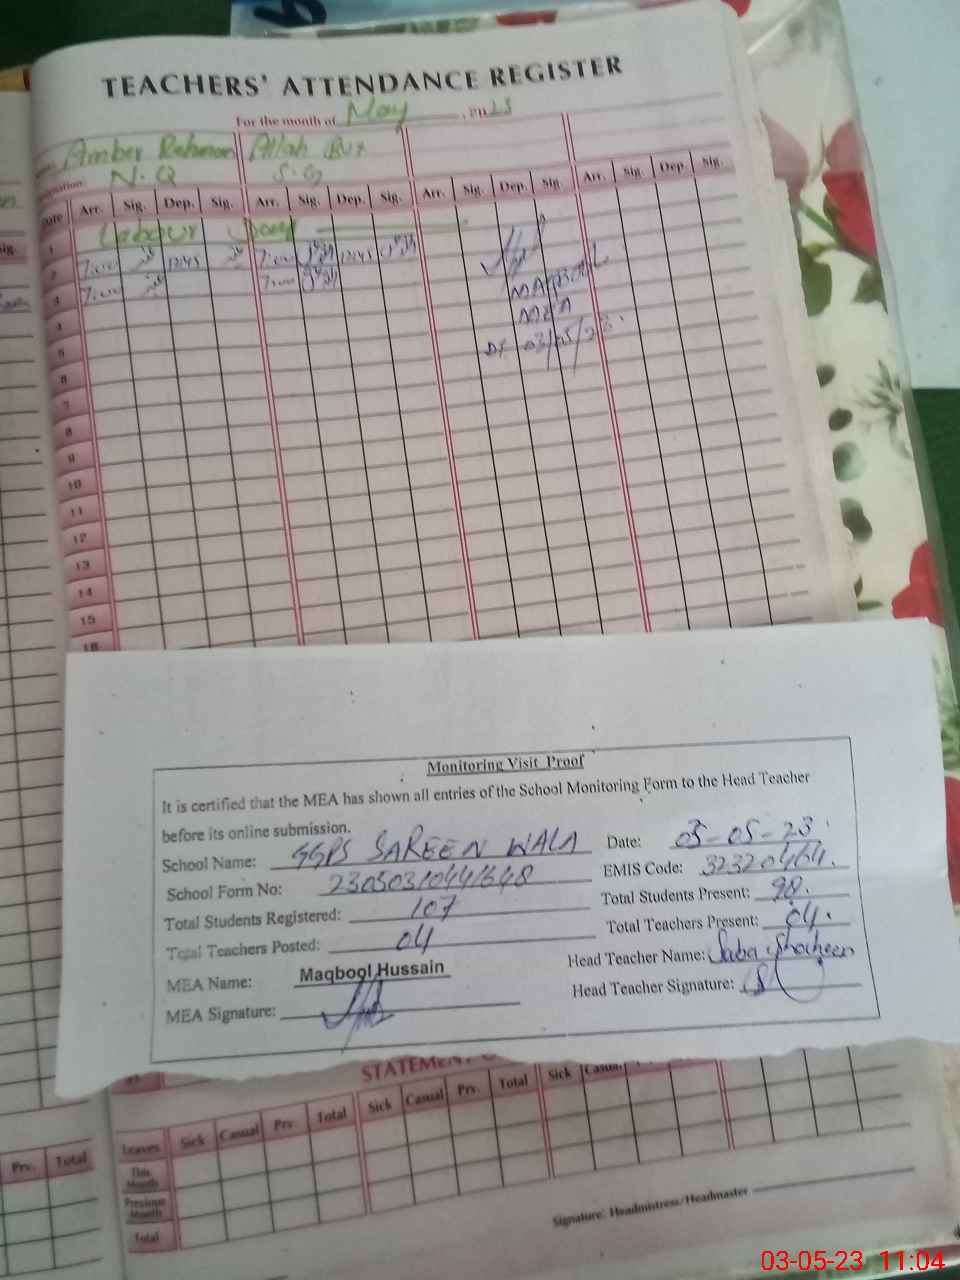 TEACHERS' ATTENDANCE REGISTER
For the month of May, 2023
Amber Rehman Allah
N.Q S.G
Date Arr. Sig. Dep. Sig. Arr. Sig. Dep. Sig. Arr. Sig. Dep. Sig Arr. Sig. Dep. Sig.
1 Labour Day
2 7:00 1245 7:00 1245
3 7:00 7:00
MAQBOOL
MEA
DT 03/05/23.
4
5
6
7
8
9
10
11
12
13
14
15
16
Monitoring Visit Proof
It is certified that the MEA has shown all entries of the School Monitoring Form to the Head Teacher
before its online submission.
School Name: GGPS SAREEN WALA Date: 03-05-23
School Form No: EMIS Code: 32320464.
Total Students Registered: 107 Total Students Present: 98.
Total Teachers Posted: 04 Total Teachers Present: 04.
MEA Name: Maqbool Hussain Head Teacher Name: Saba Shaheen
MEA Signature: Head Teacher Signature:
STATEMENT
Leaves Sick Casual Prv. Total Sick Casual Prv. Total Sick Casual
This Month
Previous Month
Total
Prv. Total
Signature: Headmistress/Headmaster
03-05-23 11:04